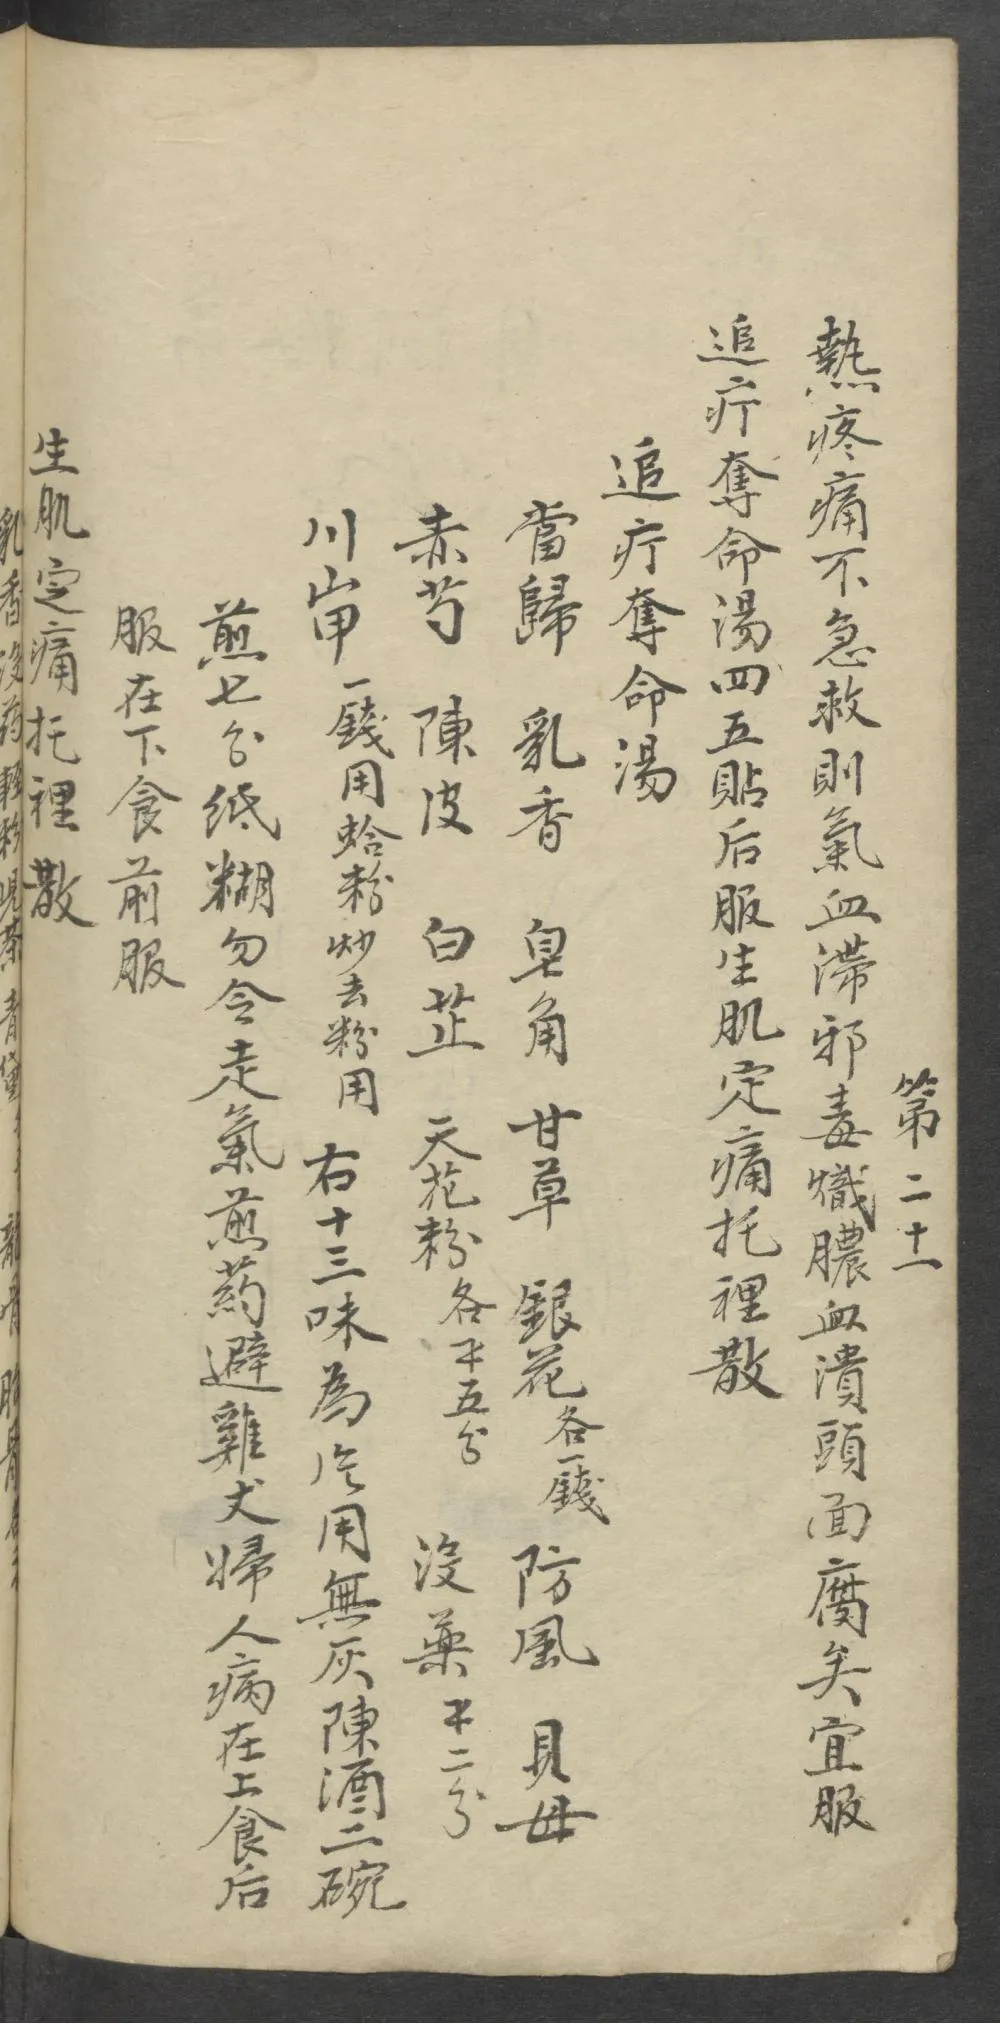 第二十一
熱疼痛不急救則氣血滯邪毒熾膿血潰頭面腐矣宜服
追疔奪命湯四五貼后服生肌定痛托裡散
追疔奪命湯
當歸 乳香 皂角 甘草 銀花各一錢 防風 貝母
赤芍 陳皮 白芷 天花粉各 五分 沒藥 二分
川甲一錢用蛤粉炒去粉用 右十三味為 用無灰陳酒二碗
煎七分纸糊勿令走氣煎药避雞犬婦人病在上食后
服在下食前服
生肌定痛托裡散
乳香沒药輕粉児茶青黛 龍骨